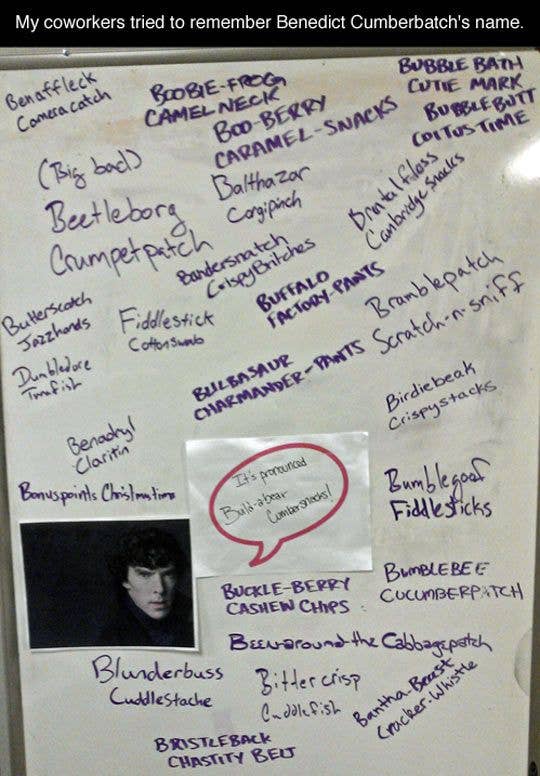 My coworkers tried to remember Benedict Cumberbatch's name.
Benaffleck
Cameracatch
BOOBIE-FROG
CAMEL NECK
BUBBLE BATH
CUTIE MARK
BOO-BERRY
CARAMEL-SNACKS
BUBBLE BUTT
COITUS TIME
(Big bad)
Beetleborg
Crumpetpatch
Balthazar
Corgipinch
Dental floss
Cambridge snacks
Bandersnatch
CrispyBritches
BUFFALO
FACTORY-PANTS
Bramblepatch
Scratch-n-sniff
Butterscotch
Jazzhands
Fiddlestick
Cottonswab
Dumbledore
Tunafish
BULBASAUR
CHARMANDER-PANTS
Birdiebeak
Crispystacks
Benadryl
Claritin
Bonuspoints Christmastime
It's pronounced
Build-a-bear
Cumbersnacks!
Bumblegoof
Fiddlesticks
BUCKLE-BERRY
CASHEW CHIPS
BUMBLEBEE
CUCUMBERPATCH
Been-around-the Cabbagepatch
Blunderbuss
Cuddlestache
Bitter crisp
Cuddlefish
Bantha-Breast
Cracker-Whistle
BRISTLEBACK
CHASTITY BELT